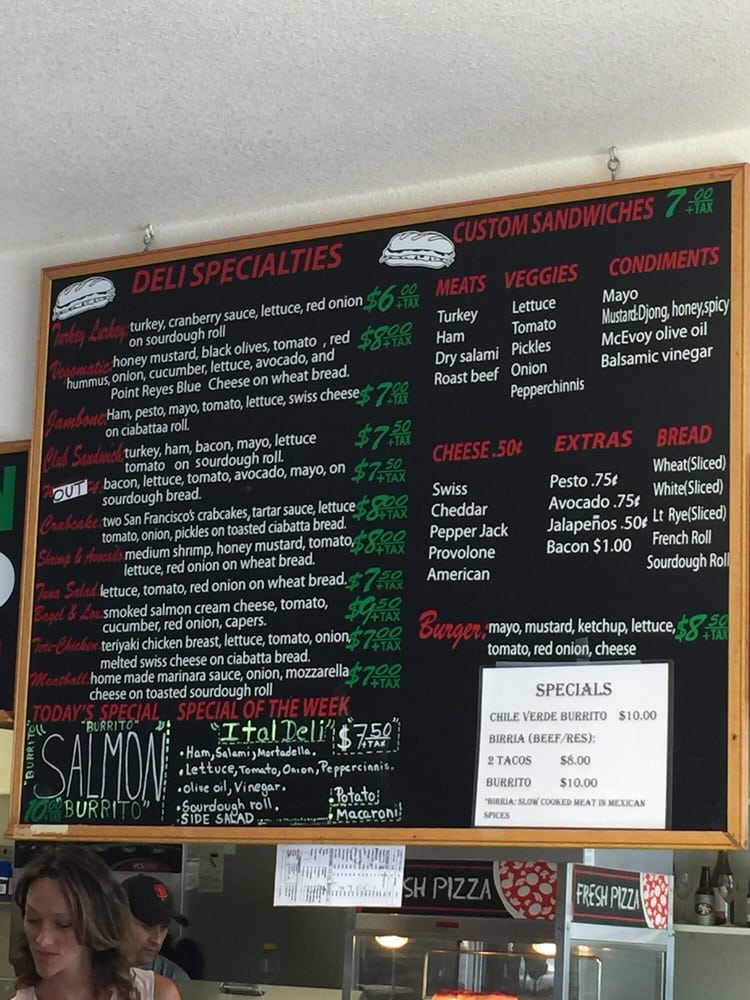 DELI SPECIALTIES
Turkey Lurkey: turkey, cranberry sauce, lettuce, red onion $6.00 +TAX
on sourdough roll
Vegomatic: honey mustard, black olives, tomato , red $8.00 +TAX
hummus, onion, cucumber, lettuce, avocado, and
Point Reyes Blue Cheese on wheat bread.
Jambone: Ham, pesto, mayo, tomato, lettuce, swiss cheese $7.00 +TAX
on ciabattaa roll.
Club Sandwich: turkey, ham, bacon, mayo, lettuce $7.50 +TAX
tomato on sourdough roll.
OUT bacon, lettuce, tomato, avocado, mayo, on $7.50 +TAX
sourdough bread.
Crabcake: two San Francisco's crabcakes, tartar sauce, lettuce $8.00 +TAX
tomato, onion, pickles on toasted ciabatta bread.
Shrimp & Avocado: medium shrimp, honey mustard, tomato, $8.00 +TAX
lettuce, red onion on wheat bread.
Tuna Salad: lettuce, tomato, red onion on wheat bread. $7.50 +TAX
Bagel & Lox: smoked salmon cream cheese, tomato, $9.50 +TAX
cucumber, red onion, capers.
Teri-Chicken: teriyaki chicken breast, lettuce, tomato, onion, $7.00 +TAX
melted swiss cheese on ciabatta bread.
Meatball: home made marinara sauce, onion, mozzarella $7.00 +TAX
cheese on toasted sourdough roll
TODAY'S SPECIAL
"BURRITO"
BURRITO
SALMON
10.00 "BURRITO"
SPECIAL OF THE WEEK
"Ital Deli" "$7.50" +TAX
• Ham, Salami, Mortadella.
• Lettuce, Tomato, Onion, Peppercinnis.
• olive oil, Vinegar.
• Sourdough roll.
SIDE SALAD
Potato
Macaroni
CUSTOM SANDWICHES 7.00 +TAX
MEATS
Turkey
Ham
Dry salami
Roast beef
VEGGIES
Lettuce
Tomato
Pickles
Onion
Pepperchinnis
CONDIMENTS
Mayo
Mustard:Djong, honey,spicy
McEvoy olive oil
Balsamic vinegar
CHEESE .50¢
Swiss
Cheddar
Pepper Jack
Provolone
American
EXTRAS
Pesto .75¢
Avocado .75¢
Jalapeños .50¢
Bacon $1.00
BREAD
Wheat(Sliced)
White(Sliced)
Lt Rye(Sliced)
French Roll
Sourdough Roll
Burger: mayo, mustard, ketchup, lettuce, $8.50 +TAX
tomato, red onion, cheese
SPECIALS
CHILE VERDE BURRITO $10.00
BIRRIA (BEEF/RES):
2 TACOS $8.00
BURRITO $10.00
*BIRRIA: SLOW COOKED MEAT IN MEXICAN
SPICES
SH PIZZA
FRESH PIZZA